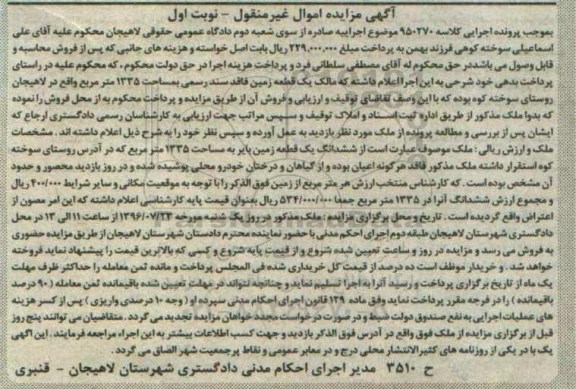 آگهی مزایده اموال غیرمنقول - نوبت اول
بموجب پرونده اجرایی کلاسه ۹۵۰۲۷۰ موضوع اجراییه صادره از سوی شعبه دوم دادگاه عمومی حقوقی لاهیجان محکوم علیه آقای علی
اسماعیلی سوخته کوهی فرزند بهمن به پرداخت مبلغ ۲۲۹.۰۰۰.۰۰۰ ریال بابت اصل خواسته و هزینه های جانبی که پس از فروش محاسبه و
قابل وصول می باشد در حق محکوم له آقای مصطفی سلطانی فرد و پرداخت هزینه اجرا در حق دولت محکوم ، که محکوم علیه در راستای
پرداخت بدهی خود شرحی به این اجرا اعلام داشته که مالک یک قطعه زمین فاقد سند رسمی بمساحت ۱۳۳۵ متر مربع واقع در لاهیجان
روستای سوخته کوه بوده که با این وصف تقاضای توقیف و ارزیابی و فروش آن از طریق مزایده و پرداخت محکوم به از محل فروش را نموده
که بدوا ملک مذکور از طریق اداره ثبت اسناد و املاک توقیف و سپس مراتب جهت ارزیابی به کارشناسان رسمی دادگستری ارجاع که
ایشان پس از بررسی و مطالعه پرونده از ملک مورد نظر بازدید به عمل آورده و سپس نظر خود را به شرح ذیل اعلام داشته اند . مشخصات
ملک و ارزش ریالی : ملک موصوف عبارت است از ششدانگ یک قطعه زمین بایر به مساحت ۱۳۳۵ متر مربع که در آدرس روستای سوخته
کوه استقرار داشته ملک مذکور فاقد هرگونه اعیان بوده و از گیاهان و درختان خودرو محلی پوشیده شده و در روز بازدید محصور و حدود
آن مشخص بوده است . که کارشناس منتخب ارزش هر متر مربع از زمین فوق الذکر را با توجه به موقعیت مکانی و سایر شرایط ۴۰۰/۰۰۰ ریال
و مجموع ارزش ششدانگ آنرا در ۱۳۳۵ متر مربع جمعا ۵۳۴/۰۰۰/۰۰۰ ریال بعنوان قیمت پایه کارشناسی اعلام داشته که این امر مصون از
اعتراض واقع گردیده است . تاریخ و محل برگزاری مزایده : ملک مذکور در روز یک شنبه مورخه ۱۳۹۶/۰۷/۲۳ از ساعت ۱۱ الی ۱۳ در محل
دادگستری شهرستان لاهیجان طبقه دوم اجرای احکام مدنی با حضور نماینده محترم دادستان شهرستان لاهیجان از طریق مزایده حضوری
به فروش می رسد و مزایده در روز و ساعت تعیین شده شروع و از قیمت پایه شروع و کسی که بالاترین قیمت را پیشنهاد نماید فروخته
خواهد شد . و خریدار موظف است ده درصد از قیمت کل خریداری شده فی المجلس پرداخت و مانده ثمن معامله را حداکثر ظرف مهلت
یک ماه از تاریخ برگزاری پرداخت و رسید آنرا به اجرا تسلیم نماید و چنانچه نتواند در مهلت تعیین شده باقیمانده ثمن معامله ( ۹۰ درصد
باقیمانده ) را در فرجه مقرر پرداخت نماید وفق ماده ۱۲۹ قانون اجرای احکام مدنی سپرده او ( وجه ۱۰ درصدی واریزی ) پس از کسر هزینه
های عملیات اجرایی به نفع صندوق دولت ضبط و در صورت درخواست مجدد خواهان مزایده تجدید می گردد . متقاضیان می توانند پنج روز
قبل از برگزاری مزایده از ملک فوق واقع در آدرس فوق الذکر بازدید و جهت کسب اطلاعات بیشتر به این اجراء مراجعه فرمایند . این آگهی
یک بار در یکی از روزنامه های کثیرالانتشار محلی درج و در معابر عمومی و نقاط پرجمعیت شهر الصاق می گردد .
ح ۳۵۱۰ مدیر اجرای احکام مدنی دادگستری شهرستان لاهیجان - قنبری